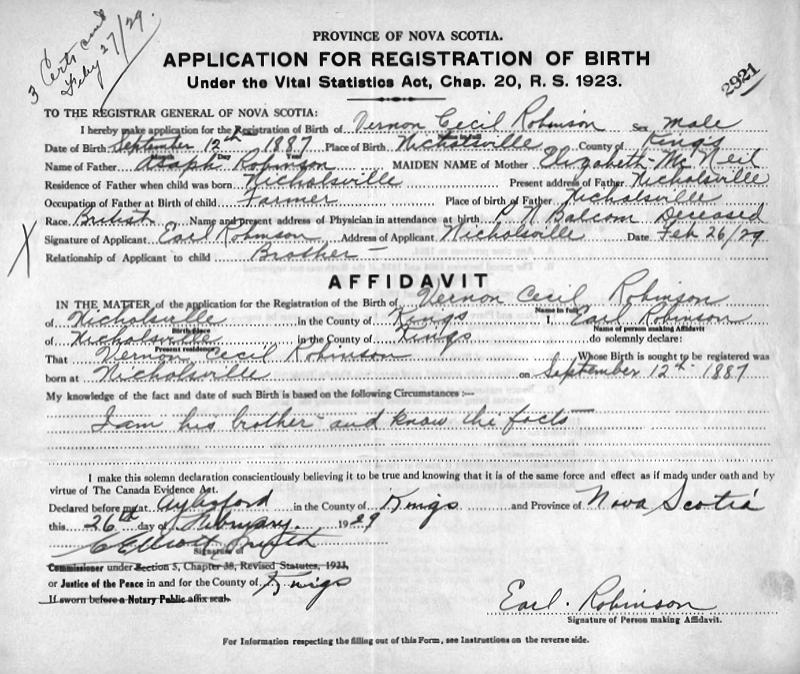 3 Certs and
Feby 27/29.
PROVINCE OF NOVA SCOTIA.
APPLICATION FOR REGISTRATION OF BIRTH
Under the Vital Statistics Act, Chap. 20, R. S. 1923.
2921
TO THE REGISTRAR GENERAL OF NOVA SCOTIA:
I hereby make application for the Registration of Birth of Vernon Cecil Robinson Sex male
Name in full
Date of Birth September 12th 1887 Place of Birth Nicholsville County of Kings
Month Day Year
Name of Father Asaph Robinson MAIDEN NAME of Mother Elizabeth McNeil
Residence of Father when child was born Nicholsville Present address of Father Nicholsville
Occupation of Father at Birth of child Farmer Place of birth of Father Nicholsville
Race British Name and present address of Physician in attendance at birth P N Balcom Deceased
Signature of Applicant Earl Robinson Address of Applicant Nicholsville Date Feb 26/29
X
Relationship of Applicant to child Brother
AFFIDAVIT
IN THE MATTER of the application for the Registration of the Birth of Vernon Cecil Robinson
Name in full
of Nicholsville in the County of Kings I, Earl Robinson
Birth Place Name of person making Affidavit
of Nicholsville in the County of Kings do solemnly declare:
Present residence
That Vernon Cecil Robinson Whose Birth is sought to be registered was
born at Nicholsville on September 12th 1887
My knowledge of the fact and date of such Birth is based on the following Circumstances :—
I am his brother and know the facts
I make this solemn declaration conscientiously believing it to be true and knowing that it is of the same force and effect as if made under oath and by
virtue of The Canada Evidence Act.
Declared before me at Aylesford in the County of Kings and Province of Nova Scotia
this 26th day of February. 1929
C Elliott Smith
Signature of
Commissioner under Section 5, Chapter 38, Revised Statutes, 1923,
or Justice of the Peace in and for the County of Kings
If sworn before a Notary Public affix seal.
Earl. Robinson
Signature of Person making Affidavit.
For Information respecting the filling out of this Form, see Instructions on the reverse side.